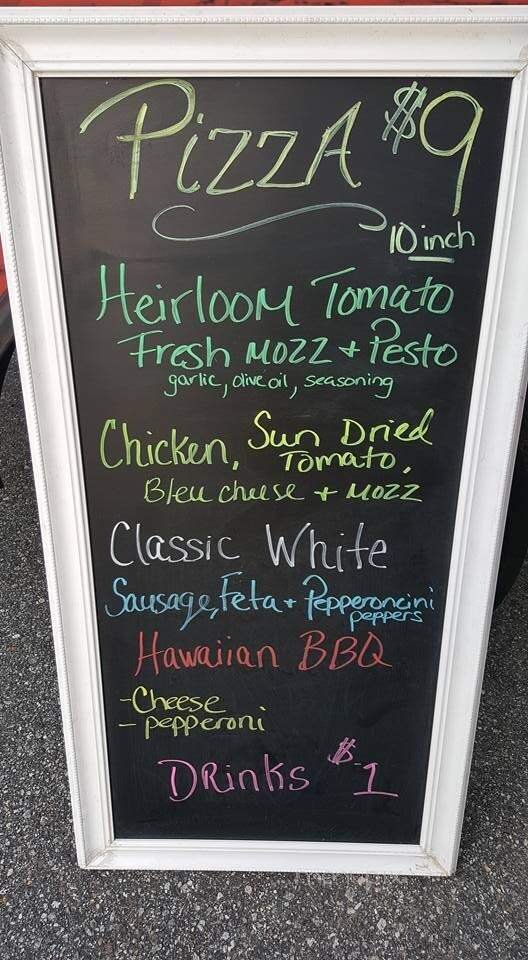 PIZZA $9
10 inch
Heirloom Tomato
Fresh Mozz + Pesto
garlic, olive oil, seasoning
Chicken, Sun Dried
Tomato,
Bleu cheese + Mozz
Classic White
Sausage, Feta + Pepperoncini
peppers
Hawaiian BBQ
- Cheese
- pepperoni
DRinks $1